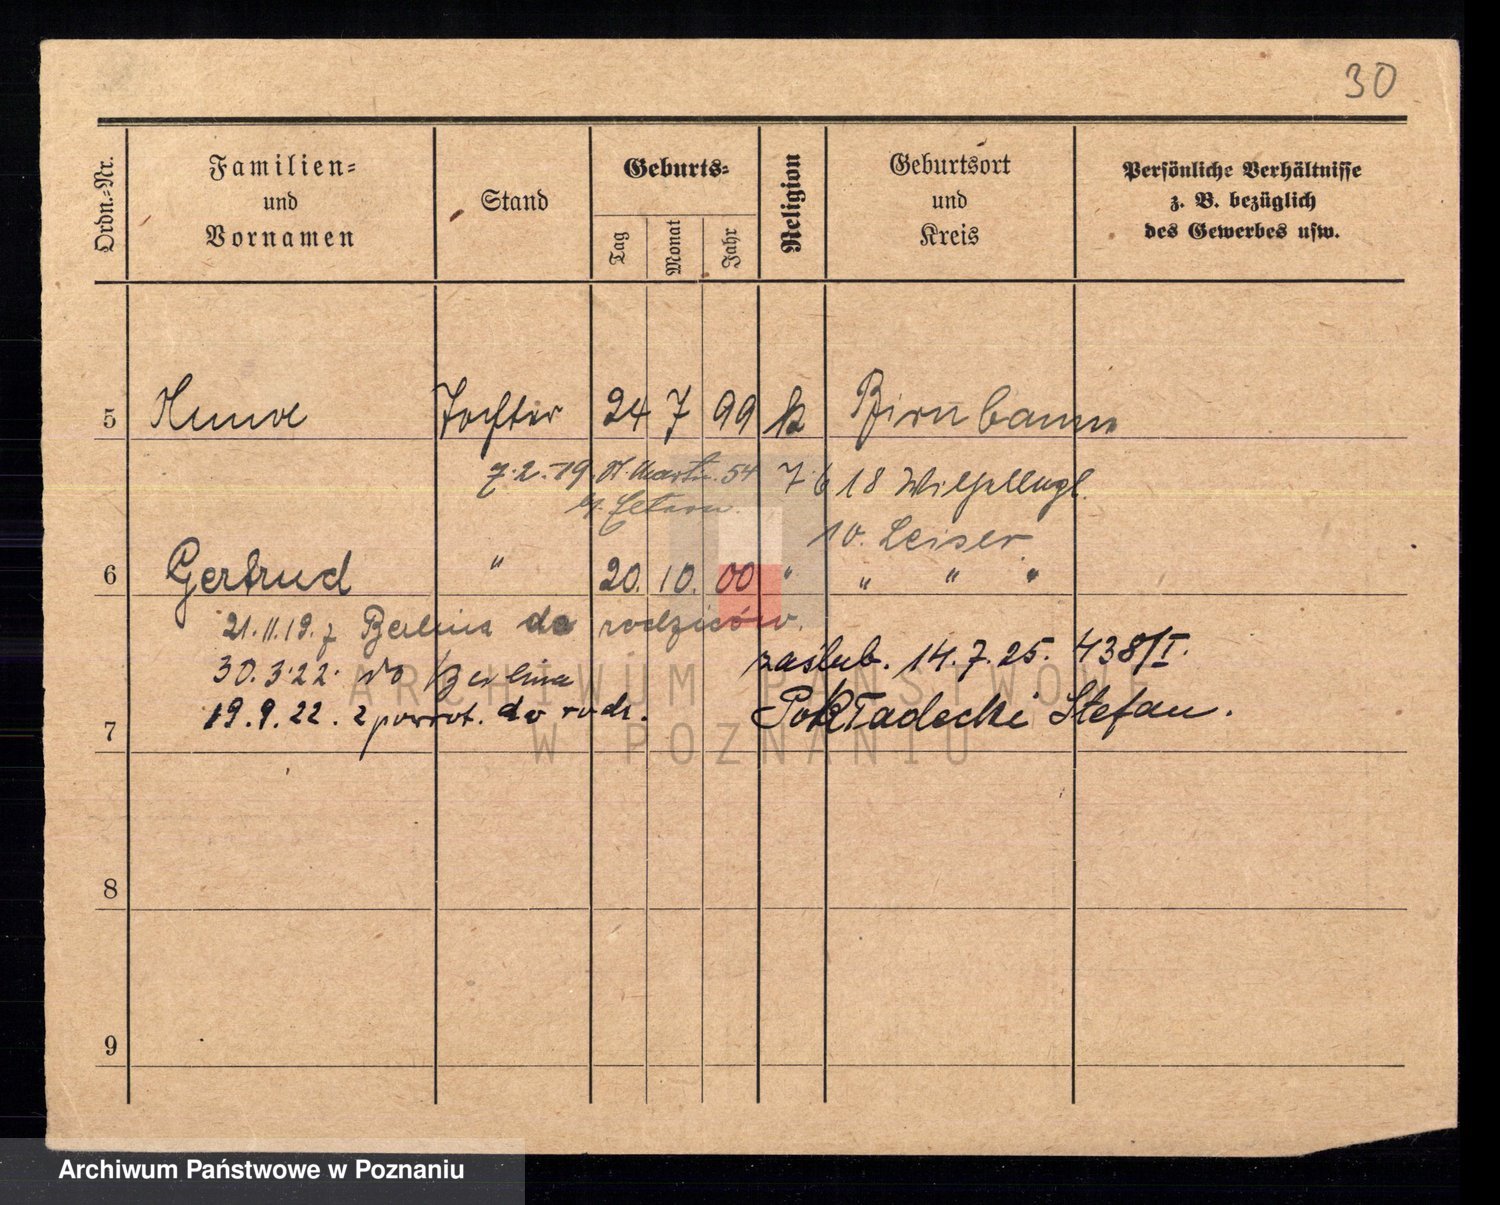 30
Ordn.-Nr.
Familien-
und
Vornamen
Stand
Geburts-
Tag
Monat
Jahr
Religion
Geburtsort
und
Kreis
Persönliche Verhältnisse
z. B. bezüglich
des Gewerbes usw.
5 Tochter 24 7 99 k Birnbaum
7.2.19. St. Martin 54 7 6 18
10. Leiser
6 Gertrud " 20. 10. 00 " " " "
21.11.19. z Berlina do rodziców.
30.3.22. do Berlina
zaślub. 14.7.25. 438/I.
19.9.22. z powrot. do rodz.
7 Stefan.
8
9
ARCHIWUM PAŃSTWOWE
W POZNANIU
Archiwum Państwowe w Poznaniu